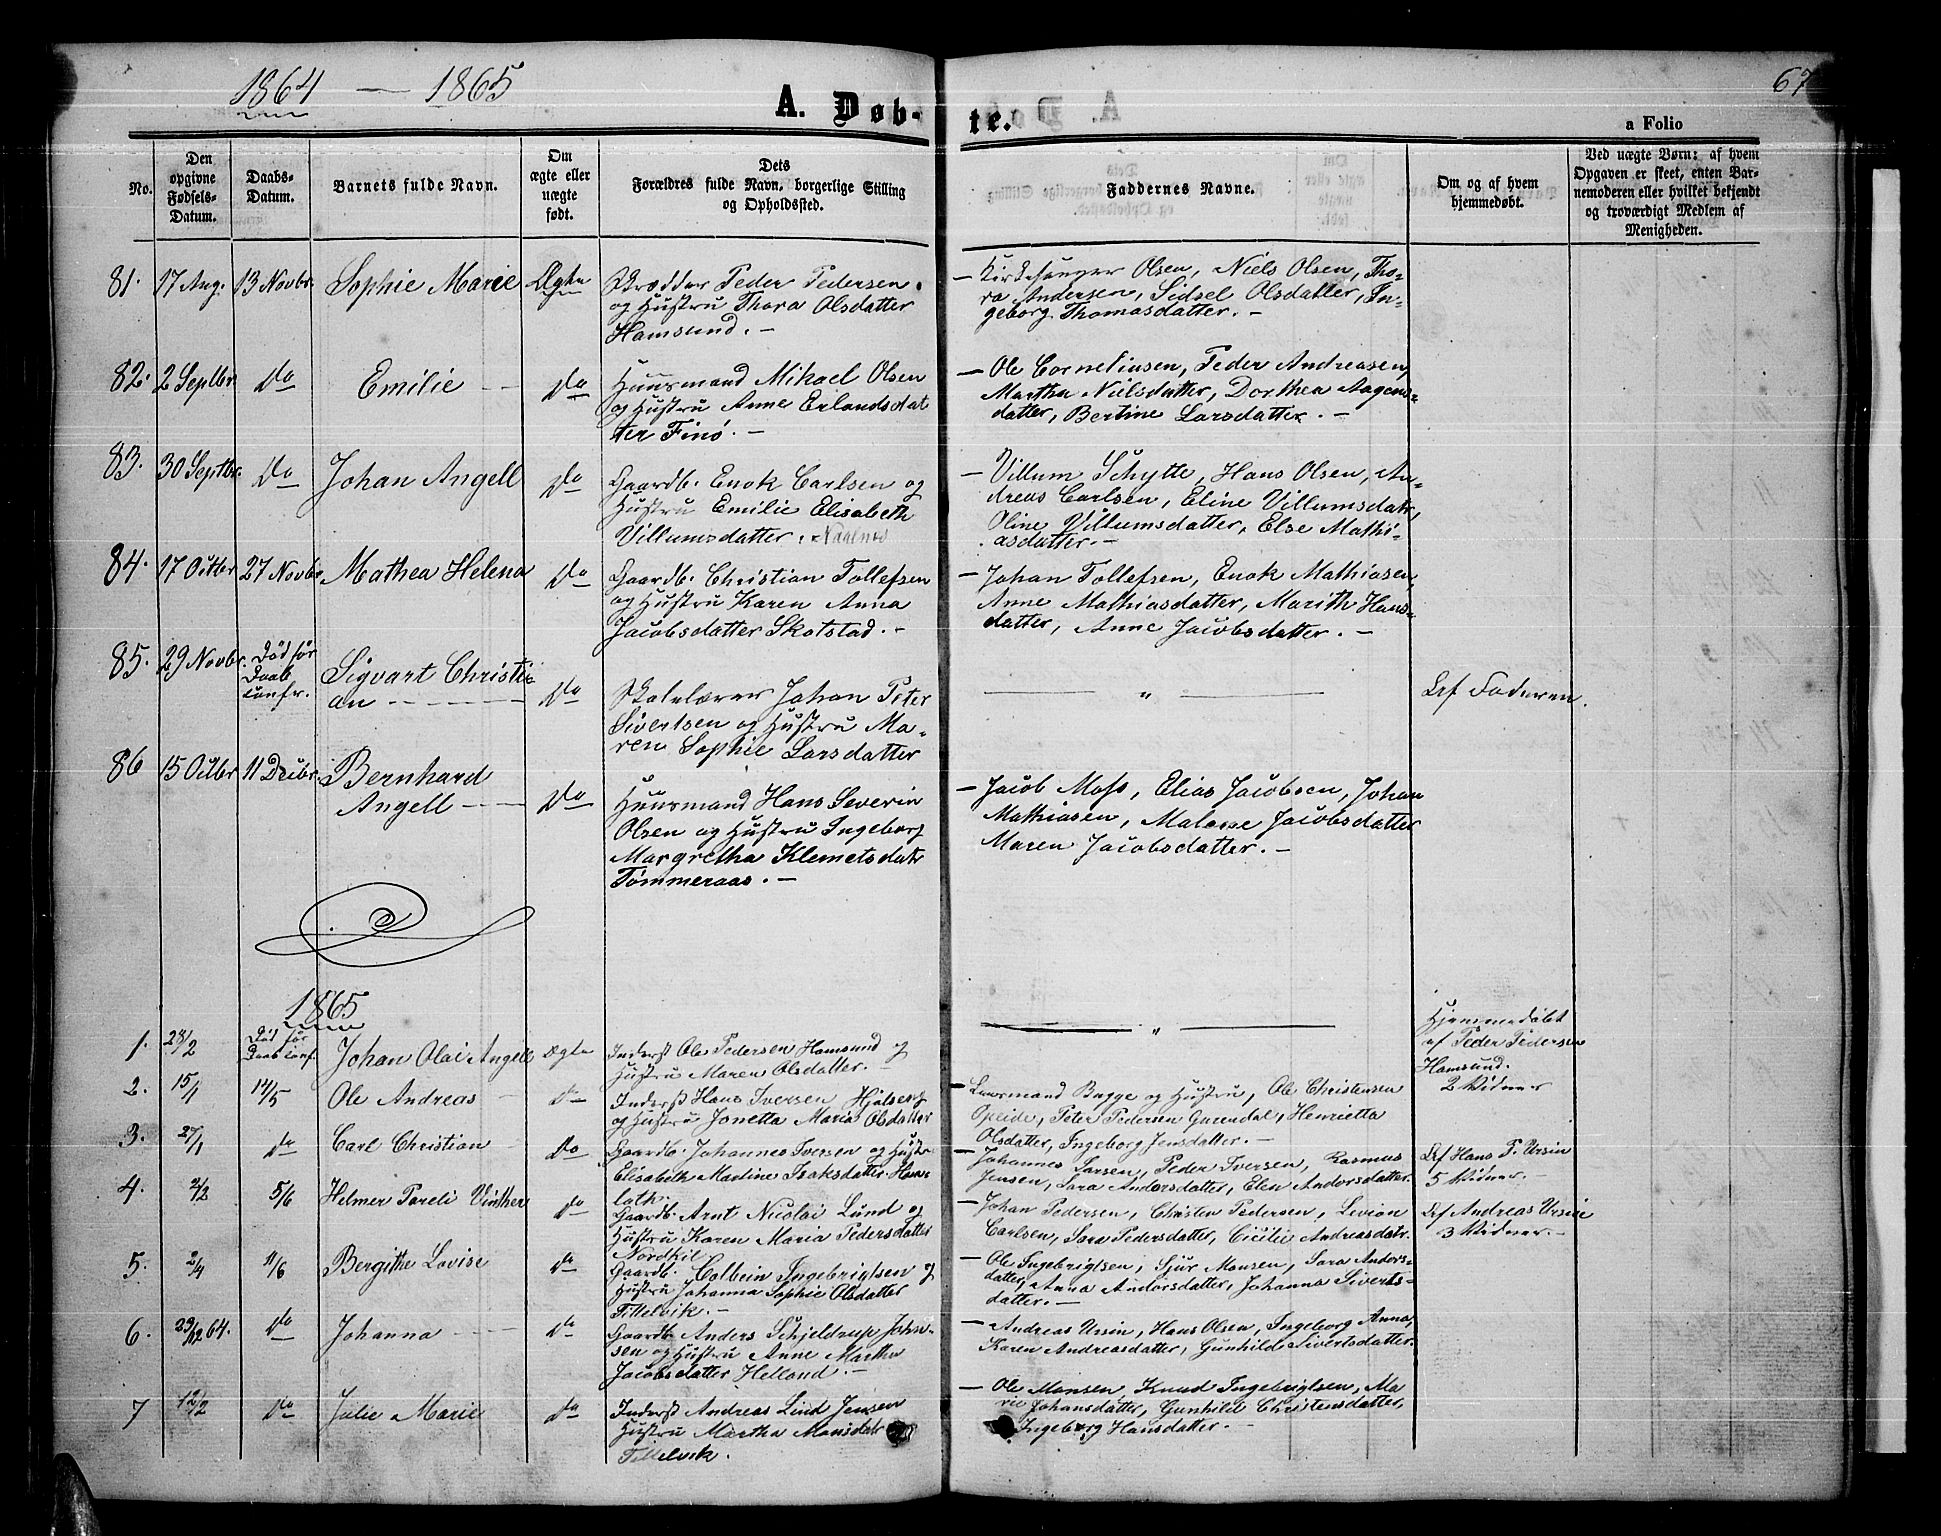 1864 — 1865
A. Døb-
te.
67
a Folio
No.
Den
opgivne
Fødsels-
Datum.
Daabs-
Datum.
Barnets fulde Navn.
Om
ægte eller
uægte
født.
Dets
Forældres fulde Navn, borgerlige Stilling
og Opholdssted.
Faddernes Navne.
Om og af hvem
hjemmedøbt.
Ved uægte Børn: af hvem
Opgaven er skeet, enten Bar-
nemoderen eller hvilket bekjendt
og troværdigt Medlem af
Menigheden.
81. 17 Aug. 13 Novbr. Sophie Marie Ægte
Skrædder Peder Pedersen
og Hustru Thora Olsdatter
Hamsund. —
— Kirkesanger Olsen, Niels Olsen, Tho-
ra Andersen, Sidsel Olsdatter, In-
geborg Thomasdatter. —
82. 2 Septbr Do Emilie — Do
Huusmand Mikael Olsen
og Hustru Anne Erlandsdat
ter Finø. —
— Ole Corneliusen, Peder Andreasen,
Martha Nielsdatter, Dorthea Aagens-
datter, Bertine Larsdatter. —
83. 30 Septbr. Do Johan Angell Do
Gaardb. Enok Carlsen og
Hustru Emilie Elisabeth
Villumsdatter.
— Villum Schytte, Hans Olsen, An-
dreas Carlsen, Eline Villumsdatr,
Oline Villumsdatter, Else Mathi-
asdatter. —
84. 17 Octbr 27 Novbr. Mathea Helena Do
Gaardb. Christian Tollefsen
og Hustru Karen Anna
Jacobsdatter Skotstad. —
— Johan Tollefsen, Enok Mathiasen,
Anne Mathiasdatter, Marith Hans-
datter, Anne Jacobsdatter. —
85. 29 Novbr. Død før
Daab
confr.
Sigvart Christi-
an — Do
Skolelærer Johan Peter
Sivertsen og Hustru Ma-
ren Sophie Larsdatter
— " —
Af Faderen.
86 15 Octbr 11 Decbr. Bernhard
Angell — Do
Huusmand Hans Severin
Olsen og Hustru Ingeborg
Margretha Klemetsdatr
Tømmeraas. —
— Jacob Moss, Elias Jacobsen, Johan
Mathiasen, Malene Jacobsdatter
Maren Jacobsdatter. —
1865
1. 28/2 Død før
Daab conf.
Johan Olai Angell Ægte
Inderst Ole Pedersen Hamsund og
Hustru Maren Olsdatter. —
— " —
Hjemmedøbt
af Peder Pedersen
Hamsund.
2 Vidner
2. 15/1 14/5 Ole Andreas — Do
Inderst Hans Iversen Hjelseng
og Hustru Jonetta Maria Olsdatter
— Lensmand Bugge og Hustru, Ole Christensen
Opeide, Peter Pedersen, Henrietta
Olsdatter, Ingeborg Jensdatter. —
3. 27/1 Do Carl Christian Do
Gaardb. Johannes Iversen og Hustr.
Elisabeth Martine Isaksdatter
— Johannes Larsen, Peder Iversen, Rasmus
Jensen, Sara Andorsdatter, Elen Andorsdatter.
Af Hans P. Ursin
5 Vidner. —
4. 2/2 5/6 Helmer Pareli Vinther Do
Gaardb. Arnt Nicolai Lund og
Hustru Karen Maria Pedersdatter
Nordkil
— Johan Pedersen, Christen Pedersen, Levion
Carlsen, Sara Pedersdatter, Cicilie Andreasdatr.
Af Andreas Ursin
3 Vidner. —
5. 2/4 11/6 Bergithe Lovise Do
Gaardb. Colbein Ingebrigtsen og
Hustru Johanna Sophie Olsdatter
Tiltelvik. —
— Ole Ingebrigtsen, Sjur Monsen, Sara Andors-
datter, Anna Andorsdatter, Johanna Siverts-
datter. —
6. 29/12 64. Do Johanna — Do
Gaardb. Anders Schjeldrup John-
sen og Hustru Anne Martha
Jacobsdatter Helland. —
— Andreas Ursin, Hans Olsen, Ingeborg Anna,
Karen Andreasdatter, Gunhild Sivertsdatter.
7 12/2 Do Julie Marie Do
Inderst Andreas Lind Jensen
Hustru Martha Monsdatr
Tiltelvik.
— Ole Monsen, Knud Ingebrigtsen, Ma
rie Johansdatter, Gunhild Christensdatter,
Ingeborg Hansdatter. —